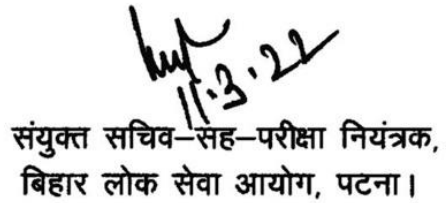 11.3.22
संयुक्त सचिव–सह–परीक्षा नियंत्रक,
बिहार लोक सेवा आयोग, पटना।